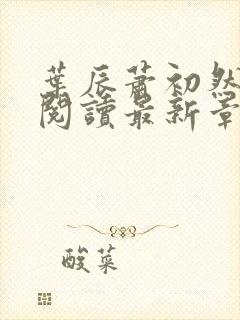 葉辰蕭初然
閱讀最新章
酸菜